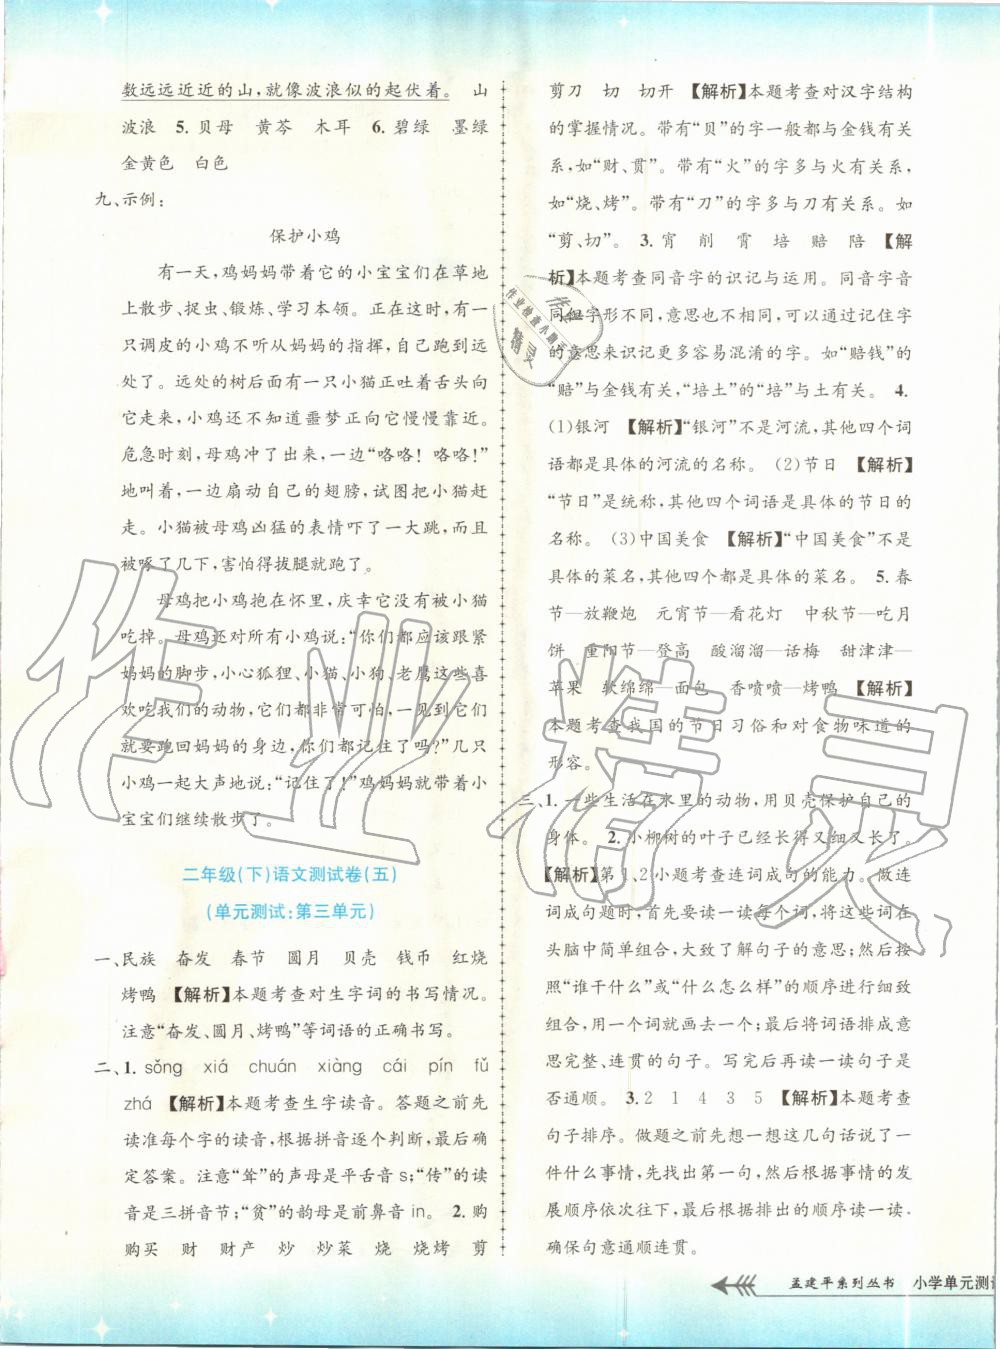 数远远近近的山,就像波浪似的起伏着。 山
波浪 5. 贝母 黄芩 木耳 6. 碧绿 墨绿
金黄色 白色
九、示例:
保护小鸡
有一天,鸡妈妈带着它的小宝宝们在草地
上散步、捉虫、锻炼、学习本领。正在这时,有一
只调皮的小鸡不听从妈妈的指挥,自己跑到远
处玩。远处的树后面有一只小猫正吐着舌头向
它走来,小鸡还不知道噩梦正向它慢慢靠近。
危急时刻,母鸡冲了出来,一边“咯咯!咯咯!”
地叫着,一边扇动自己的翅膀,试图把小猫赶
走。小猫被母鸡凶猛的表情吓了一大跳,而且
被啄了几下,害怕得拔腿就跑了。
母鸡把小鸡抱在怀里,庆幸它没有被小猫
吃掉。母鸡还对所有小鸡说:“你们都应该跟紧
妈妈的脚步,小心狐狸、小猫、小狗、老鹰这些喜
欢吃我们的动物,它们都非常可怕,一见到它们
就要跑回妈妈的身边,你们都记住了吗?”几只
小鸡一起大声地说:“记住了!”鸡妈妈就带着小
宝宝们继续散步了。
二年级(下)语文测试卷(五)
(单元测试:第三单元)
一、民族 奋发 春节 圆月 贝壳 钱币 红烧
烤鸭 【解析】本题考查对生字词的书写情况。
注意“奋发、圆月、烤鸭”等词语的正确书写。
二、1. sǒng xiá chuán xiàng cái pín fǔ
zhá 【解析】本题考查生字读音。答题之前先
读准每个字的读音,根据拼音逐个判断,最后确
定答案。注意“耸”的声母是平舌音s;“传”的读
音是三拼音节;“贫”的韵母是前鼻音in。 2. 购
购买 财 财产 炒 炒菜 烧 烧烤 剪
剪刀 切 切开 【解析】本题考查对汉字结构
的掌握情况。带有“贝”的字一般都与金钱有关
系,如“财、贯”。带有“火”的字多与火有关系,
如“烧、烤”。带有“刀”的字多与刀有关系。如
“剪、切”。 3. 宵 削 霄 培 赔 陪 【解
析】本题考查同音字的识记与运用。同音字音
同但字形不同,意思也不相同,可以通过记住字
的意思来识记更多容易混淆的字。如“赔钱”的
“赔”与金钱有关,“培土”的“培”与土有关。 4.
(1)银河 【解析】“银河”不是河流,其他四个词
语都是具体的河流的名称。 (2)节日 【解析】
“节日”是统称,其他四个词语是具体的节日的
名称。 (3)中国美食 【解析】“中国美食”不是
具体的菜名,其他四个都是具体的菜名。 5. 春
节—放鞭炮 元宵节—看花灯 中秋节—吃月
饼 重阳节—登高 酸溜溜—话梅 甜津津—
苹果 软绵绵—面包 香喷喷—烤鸭 【解析】
本题考查我国的节日习俗和对食物味道的
形容。
三、1. 一些生活在水里的动物,用贝壳保护自己的
身体。 2. 小柳树的叶子已经长得又细又长了。
【解析】第1、2小题考查连词成句的能力。做连
词成句题时,首先要读一读每个词,将这些词在
头脑中简单组合,大致了解句子的意思;然后按
照“谁干什么”或“什么怎么样”的顺序进行细致
组合,用一个词就画去一个;最后将词语排成意
思完整、连贯的句子。写完后再读一读句子是
否通顺。 3. 2 1 4 3 5 【解析】本题考查
句子排序。做题之前先想一想这几句话说了一
件什么事情,先找出第一句,然后根据事情的发
展顺序依次往下,最后根据排出的顺序读一读,
确保句意通顺连贯。
孟建平系列丛书 小学单元测试
作业精灵